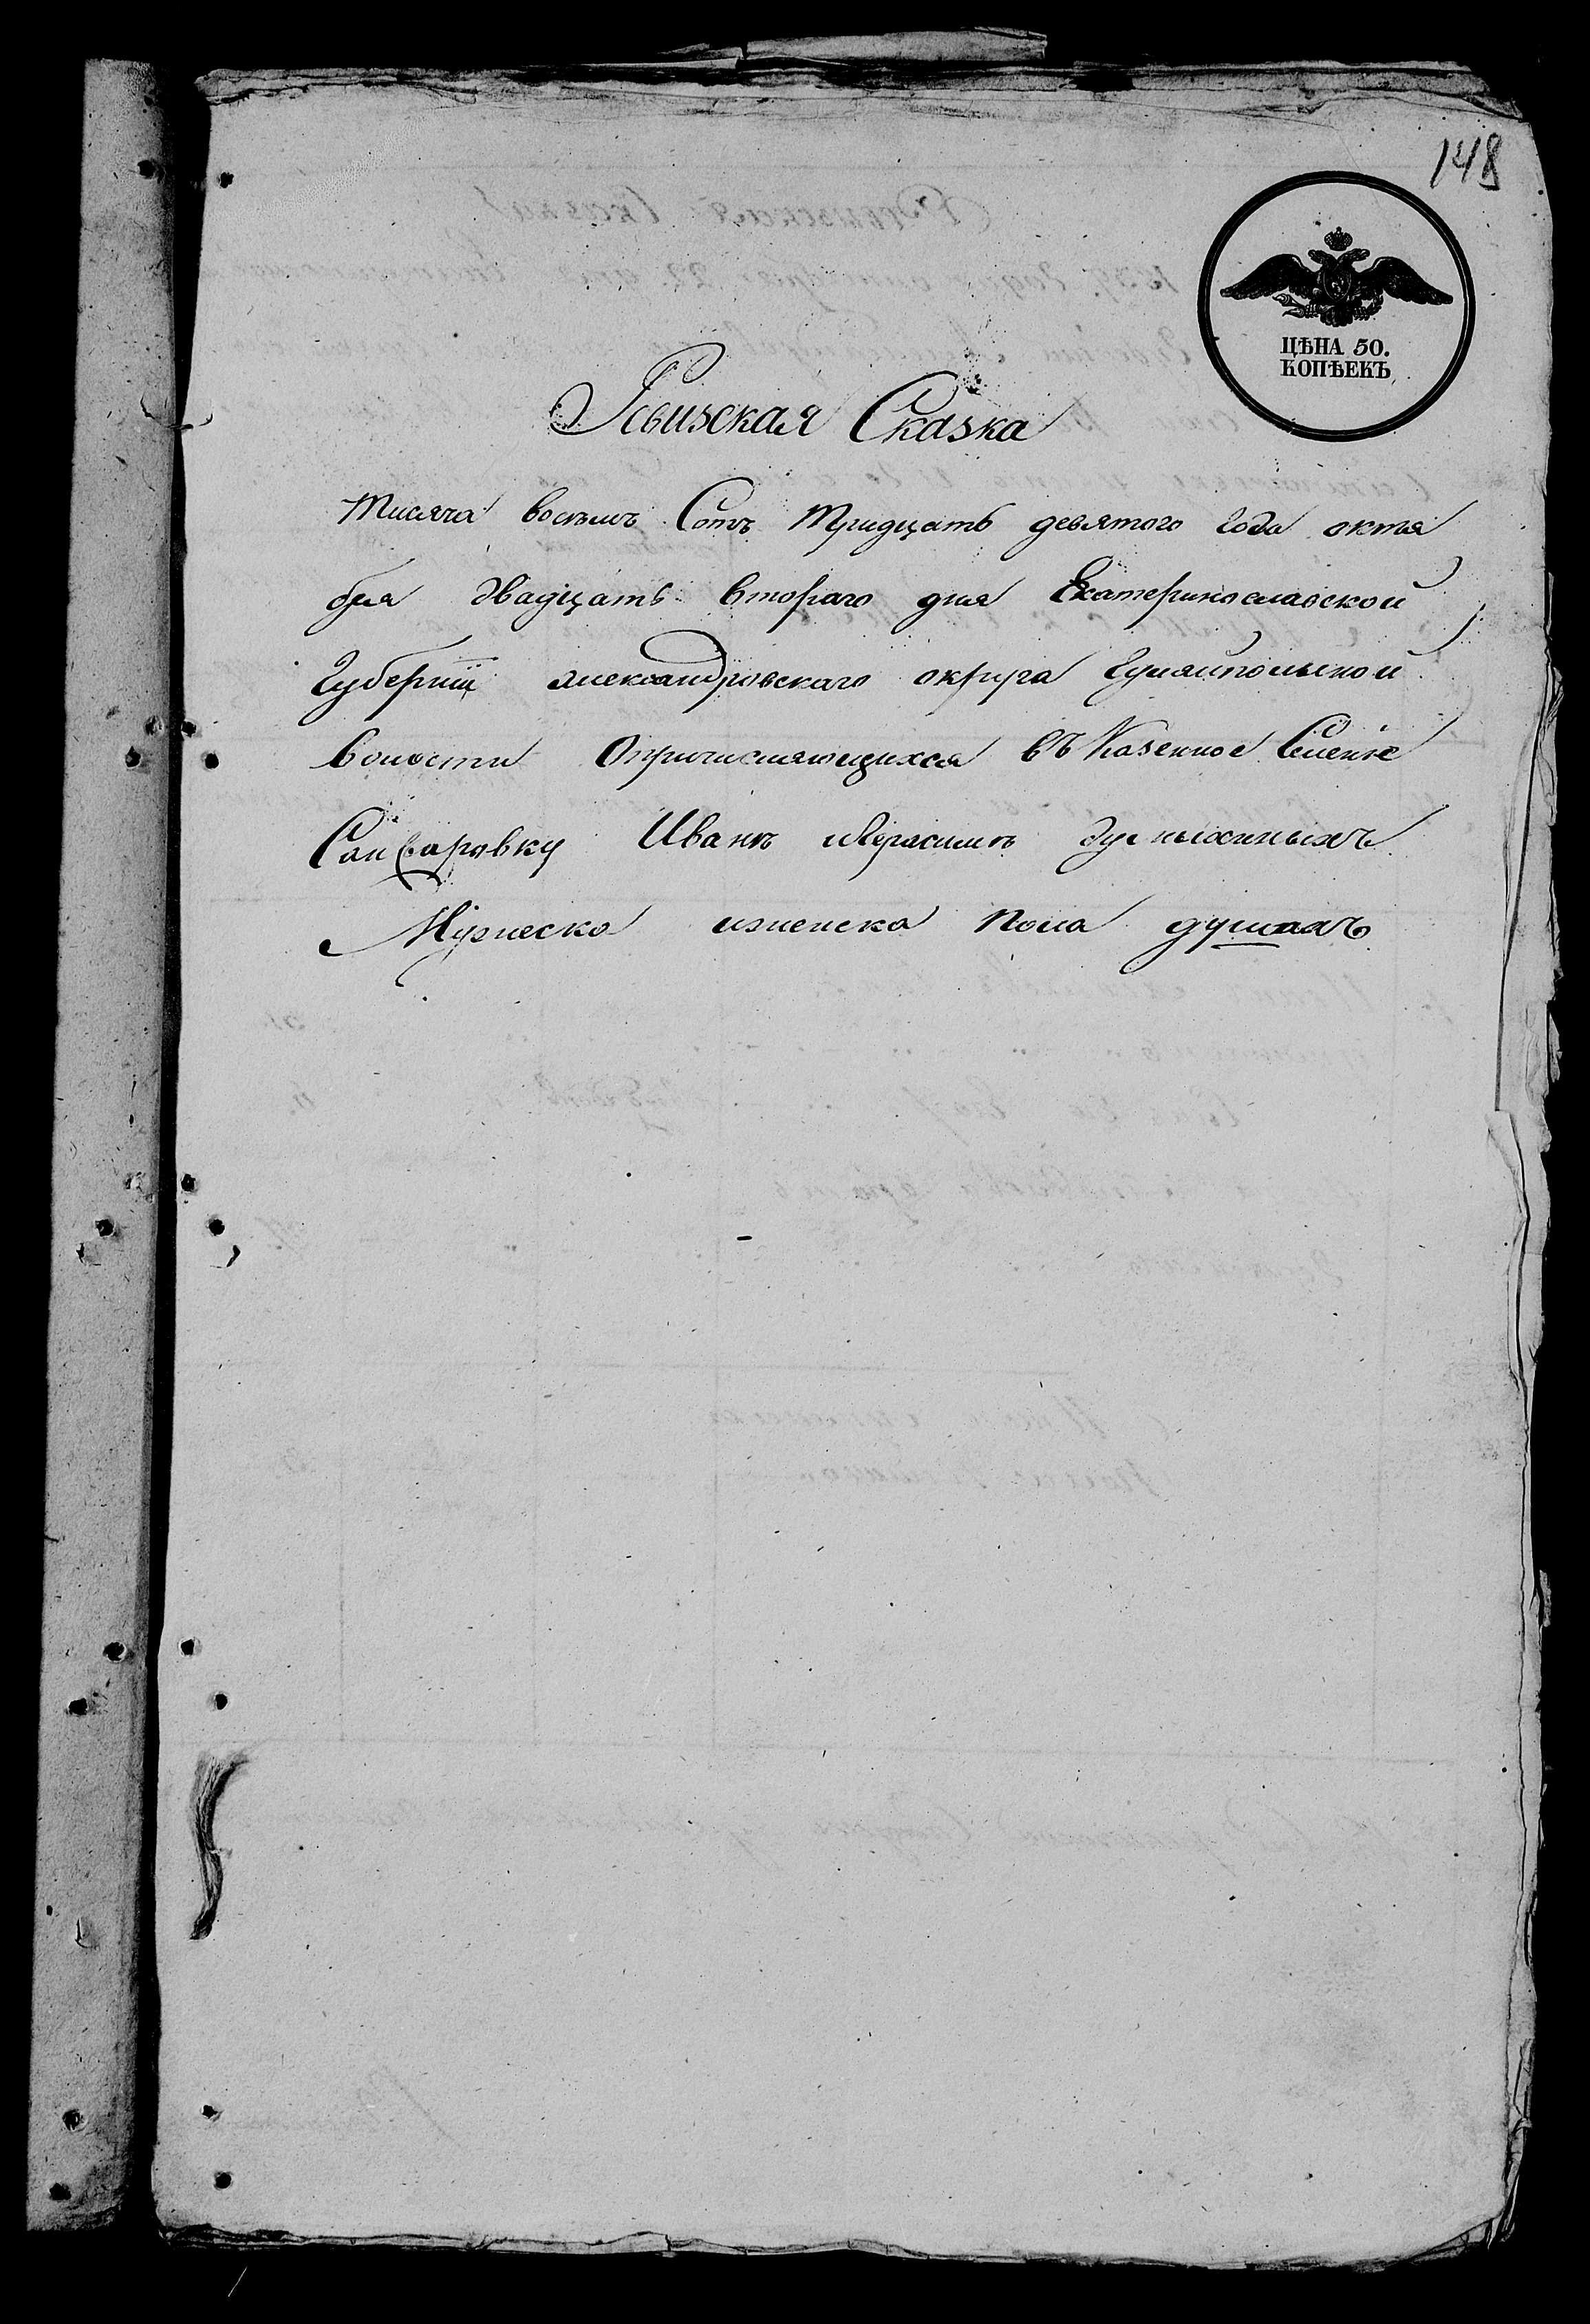 148
ЦѢНА 50.
КОПѢЕКЪ
Ревизская Сказка
тисяча восѣмъ Сотъ тридцать девятого года октя
бра двадцать втораго дня Екатеринославской
Губерніи александровскаго округа Гуляипольской
волости Опричисляющихся въ Казенное Селеніе
Санжаровку Иванѣ иГерасимѣ
Мужеска иженска пола душахъ